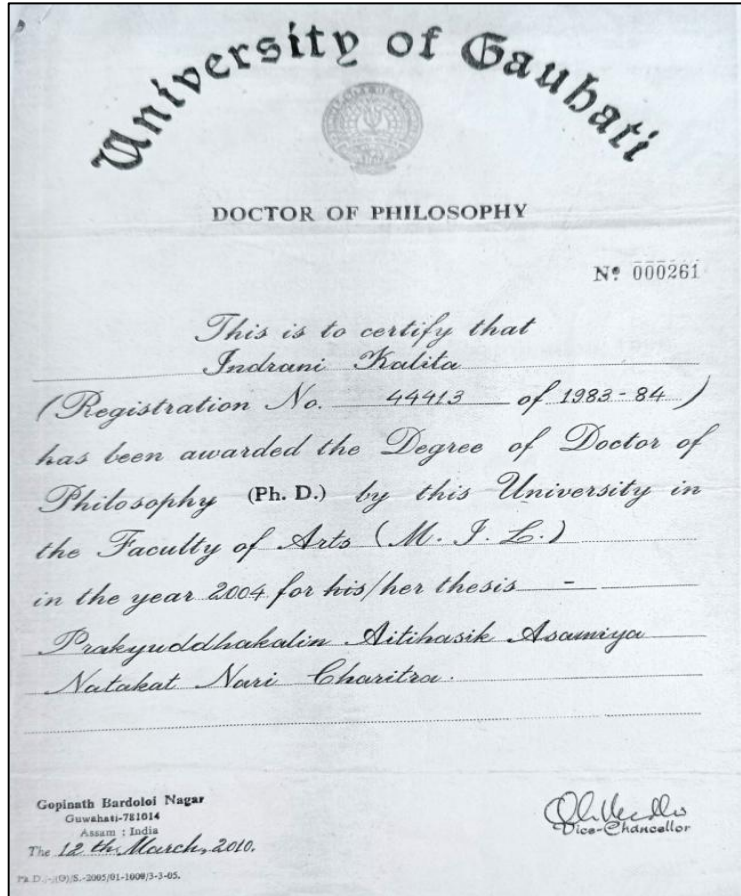 University of Gauhati
DOCTOR OF PHILOSOPHY
Nº 000261
This is to certify that
Indrani Kalita
(Registration No. 44413 of 1983-84)
has been awarded the Degree of Doctor of
Philosophy (Ph. D.) by this University in
the Faculty of Arts (M. I. L.)
in the year 2004 for his/her thesis -
Prakyuddhakalin Aitihasik Asamiya
Natakat Nari Charitra.
Gopinath Bardoloi Nagar
Guwahati-781014
Assam : India
The 12th March, 2010.
Vice-Chancellor